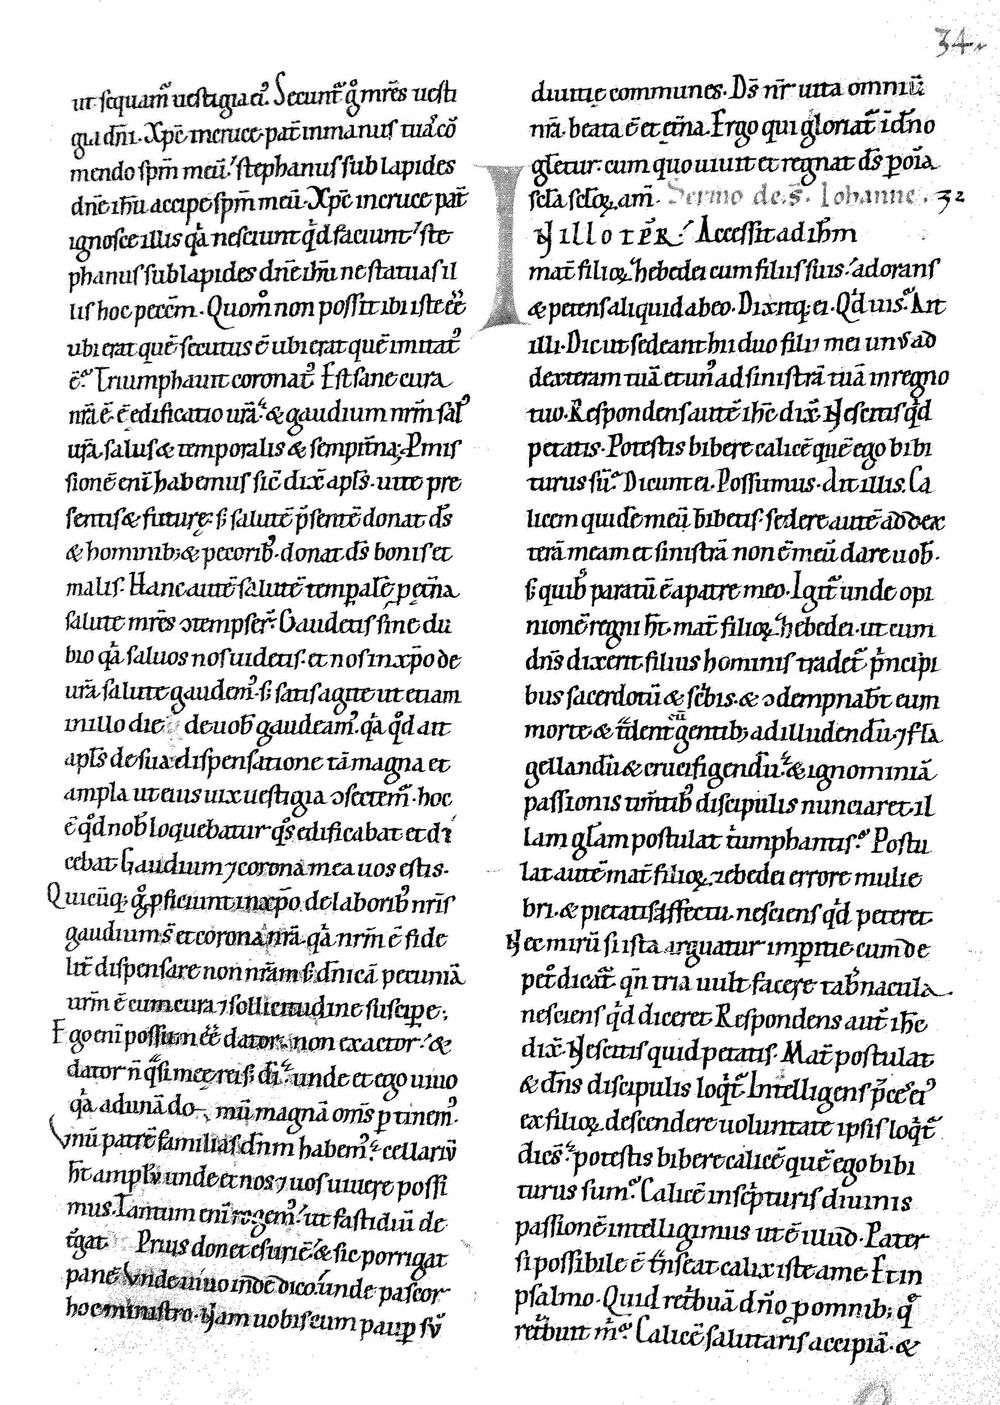 34.
ut sequam᷑ uestigia ei᷒. Secunt᷑ g̊ mr̄es uesti
gia dn̄i. Xp̄c in cruce. pat̄ in manus tuas cō
mendo sp̄m meū. stephanus sub lapides
dn̄e ih̄u accipe sp̄m meū. Xp̄c in cruce pat̄
ignosce illis qᷓa nesciunt qͥd faciunt. ste
phanus sub lapides dn̄e ih̄u ne statuas il
lis hoc peccm̄. Quom̊ non possit ibi iste ēē
ubi erat quē secutus ē ubi erat quē imitat᷒
ē. Triumphauit coronat᷒. Est sane cura
nr̄a ē edificatio ur̄a. & gaudium nrm̄ sal᷒
ur̄a. salus & temporalis & sempitn̄a; Pmis
sionē eni habemus sic̄ dix̄ apl̄s. uite pre
sentis & future. s; salutē p̄sentē donat ds̄
& hominib; & pecorib᷒. donat ds̄ bonis et
malis. Hanc autē salutē temꝑalē ꝑ et̄na
salute mr̄es ↄtempser̄. Gaudetis sine du
bio qᷓa saluos nos uidetis. et nos in xp̄o de
ur̄a salute gaudem᷒. s; satis agite ut etiam
in illo die de uob̄ gaudeam᷒. qᷓa qͦd ait
apl̄s de sua dispensatione tā magna et
ampla ut eius uix uestigia ↄsectem᷑. hoc
ē qͦd nob̄ loquebatur qͦs edificabat et di
cebat Gaudium ⁊ corona mea uos estis.
Quicūq; g̊ ꝓficiunt in xp̄o de laborib᷒ nr̄is
gaudium s̄ et corona nr̄a. qᷓa nrm̄ ē fide
lit̄ dispensare non nr̄am s; dn̄icā pecuniā
urm̄ ē cum cura ⁊ sollicitudine suscipe;
Ego eni possum ēē dator. non exactor. &
dator n̄ qͣsi meę rei s; di. unde et ego uiuo
qᷓa ad unā do mū magnā om̄s ꝑtinem᷒.
Vnū patrē familias dn̄m habem᷒. cellariū
ht̄ amplū unde et nos ⁊ uos uiuere possi
mus. Tantum eni rogem᷒. ut fastidiū de
tͥgat. Prius donet esuriē & sic porrigat
panē. Vnde uiuo inde dico. unde pascor
hoc ministro. Nam uobiscum pauꝑ sū
diuitię communes. Ds̄ nr̄ uita omniū
nr̄a. beata ē et et̄na. Ergo qui gloriat᷑ in dn̄o
gl̄etur. cum quo uiuit et regnat ds̄ ꝑ oīa
scl̄a scl̄oꝝ. am̄. Sermo de. s̄. Iohanne. 32
IN illo tēR. Accessit ad ih̄m
mat̄ filioꝝ zebedei cum filiis suis. adorans
& petens aliquid ab eo. Dixitq; ei. Qͥd uis. Ait
illi. Dic ut sedeant hii duo filii mei un᷒ ad
dexteram tuā et un᷒ ad sinistrā tuā in regno
tuo. Respondens autē ih̄c dix̄. Nescitis qͥd
petatis. Potestis bibere calicē quē ego bibi
turus sū. Dicunt ei. Possumus. Ait illis. Ca
licem quidē meū bibetis. sedere autē ad dex
terā meam et sinistrā non ē meū dare uob̄.
s; quib᷒ paratū ē a patre meo. Igit᷑ unde opi
nionē regni ht̄ mat̄ filioꝝ zebedei. ut cum
dn̄s dixerit filius hominis tradet᷑ pͥncipi
bus sacerdotū & scͥbis. & ↄdempnabt̄ eum
morte & tͣdent eū gentib; ad illudendū ⁊ fla
gellandū & crucifigendū. & ignominiā
passionis timentib᷒ discipulis nunciaret. il
lam gl̄am postulat tͥumphantis. Postu
lat autē mat̄ filioꝝ zebedei errore mulie
bri. & pietatis affectu. nesciens qͥd peteret.
Nec mirū si ista arguatur imperitię cum de
pet᷒ dicat᷑. qn̄ tria uult facere tab̄nacula.
nesciens qͥd diceret. Respondens aut̄ ih̄c
dix̄. Nescitis quid petatis. Mat̄ postulat
& dn̄s discipulis loqͥt᷑. Intelligens p̄ces ei᷒
ex filioꝝ descendere uoluntate ipsis loqͥt᷑
dices̄. potestis bibere calicē quē ego bibi
turus sum. Calicē in scͥpturis diuinis
passionē intelligimus ut ē illud. Pater
si possibile ē tͣnseat calix iste a me. Et in
psalmo. Quid retͥbuā dn̄o ꝓ omnib; qͦ
retͥbuit mͥ. Calicē salutaris accipiā. &